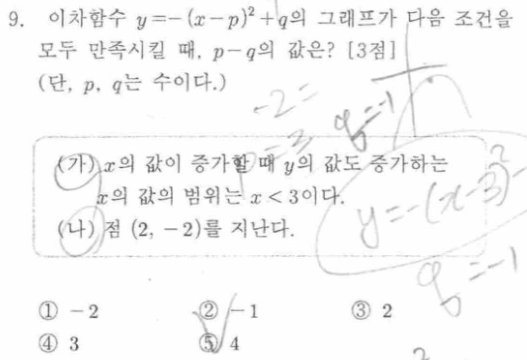 9. 이차함수 y=-(x-p)²+q의 그래프가 다음 조건을
모두 만족시킬 때, p-q의 값은? [3점]
(단, p, q는 수이다.)
-2=
p=3
q=-1
(가) x의 값이 증가할 때 y의 값도 증가하는
x의 값의 범위는 x<3이다.
(나) 점 (2, -2)를 지난다.
y=-(x-3)²-
q=-1
① -2 ② -1 ③ 2
④ 3 ⑤ 4